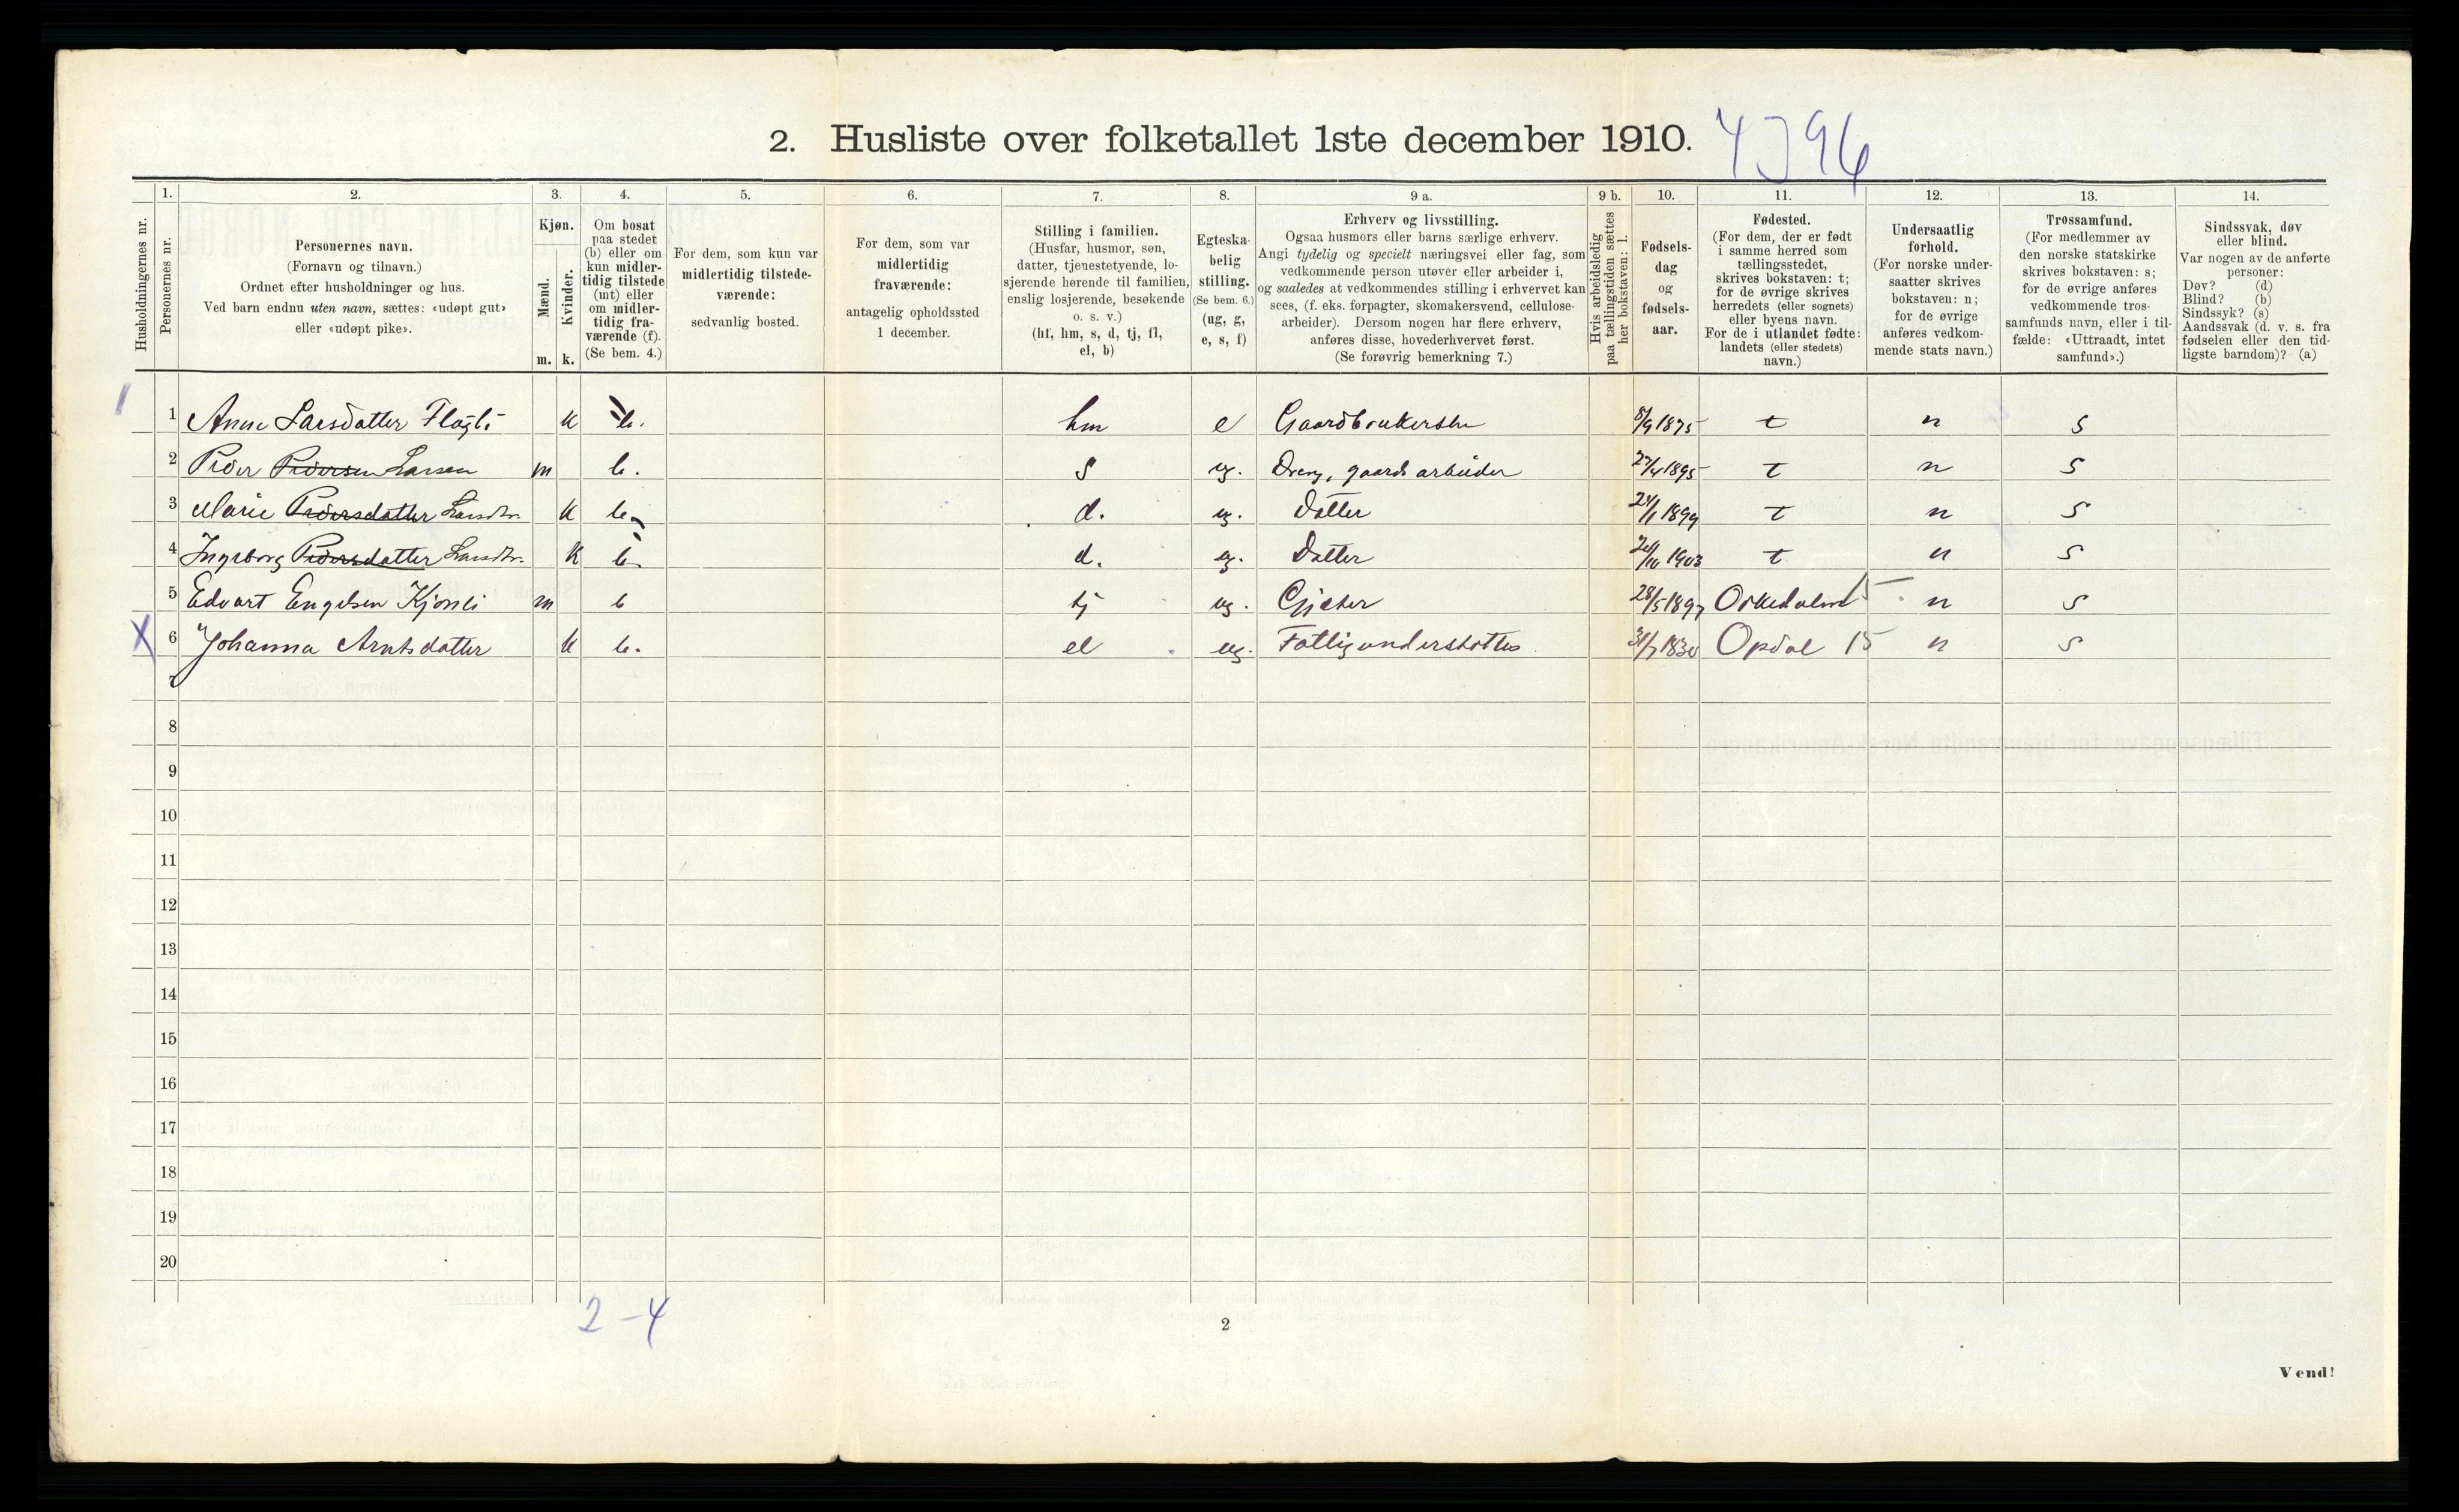 2. Husliste over folketallet 1ste december 1910.
1. 2. 3. 4. 5. 6. 7. 8. 9 a. 9 b. 10. 11. 12. 13. 14.
Husholdningernes nr.
Personernes nr.
Personernes navn.
(Fornavn og tilnavn.)
Ordnet efter husholdninger og hus.
Ved barn endnu uten navn, sættes: «udøpt gut»
eller «udøpt pike».
Kjøn.
Mænd.
Kvinder.
m. k.
Om bosat
paa stedet
(b) eller om
kun midler-
tidig tilstede
(mt) eller
om midler-
tidig fra-
værende (f).
(Se bem. 4.)
For dem, som kun var
midlertidig tilstede-
værende:
sedvanlig bosted.
For dem, som var
midlertidig
fraværende:
antagelig opholdssted
1 december.
Stilling i familien.
(Husfar, husmor, søn,
datter, tjenestetyende, lo-
sjerende hørende til familien,
enslig losjerende, besøkende
o. s. v.)
(hf, hm, s, d, tj, fl,
el, b)
Egteska-
belig
stilling.
(Se bem. 6.)
(ug, g,
e, s, f)
Erhverv og livsstilling.
Ogsaa husmors eller barns særlige erhverv.
Angi tydelig og specielt næringsvei eller fag, som
vedkommende person utøver eller arbeider i,
og saaledes at vedkommendes stilling i erhvervet kan
sees, (f. eks. forpagter, skomakersvend, cellulose-
arbeider). Dersom nogen har flere erhverv,
anføres disse, hovederhvervet først.
(Se forøvrig bemerkning 7.)
Hvis arbeidsledig
paa tællingstiden sættes
her bokstaven: l.
Fødsels-
dag
og
fødsels-
aar.
Fødested.
(For dem, der er født
i samme herred som
tællingsstedet,
skrives bokstaven: t;
for de øvrige skrives
herredets (eller sognets)
eller byens navn.
For de i utlandet fødte:
landets (eller stedets)
navn.)
Undersaatlig
forhold.
(For norske under-
saatter skrives
bokstaven: n;
for de øvrige
anføres vedkom-
mende stats navn.)
Trossamfund.
(For medlemmer av
den norske statskirke
skrives bokstaven: s;
for de øvrige anføres
vedkommende tros-
samfunds navn, eller i til-
fælde: «Uttraadt, intet
samfund».)
Sindssvak, døv
eller blind.
Var nogen av de anførte
personer:
Døv? (d)
Blind? (b)
Sindssyk? (s)
Aandssvak (d. v. s. fra
fødselen eller den tid-
ligste barndom)? (a)
1 1 Anne Larsdatter k b. hm e Gaardbrukerske 8/9 1875 t n s
2 Peder Pedersen Larsen m b. s ug. Dreng, gaardsarbeider 1895 t n s
3 Marie Pedersdatter Larsdtr. k b. d. ug. Datter 24/1 1899 t n s
4 Ingeborg Pedersdatter Larsdtr. k b. d. ug. Datter 1903 t n s
5 Edvart Engelsen Kjønli m b tj ug. Gjeter 28/5 1897 Orkedalen 15 n s
X 6 Johanna Arntsdatter k b. el ug. Fattigunderstøttes 31/7 1830 Opdal 15 n s
7
8
9
10
11
12
13
14
15
16
17
18
19
20
2 - 4
2
Vend!